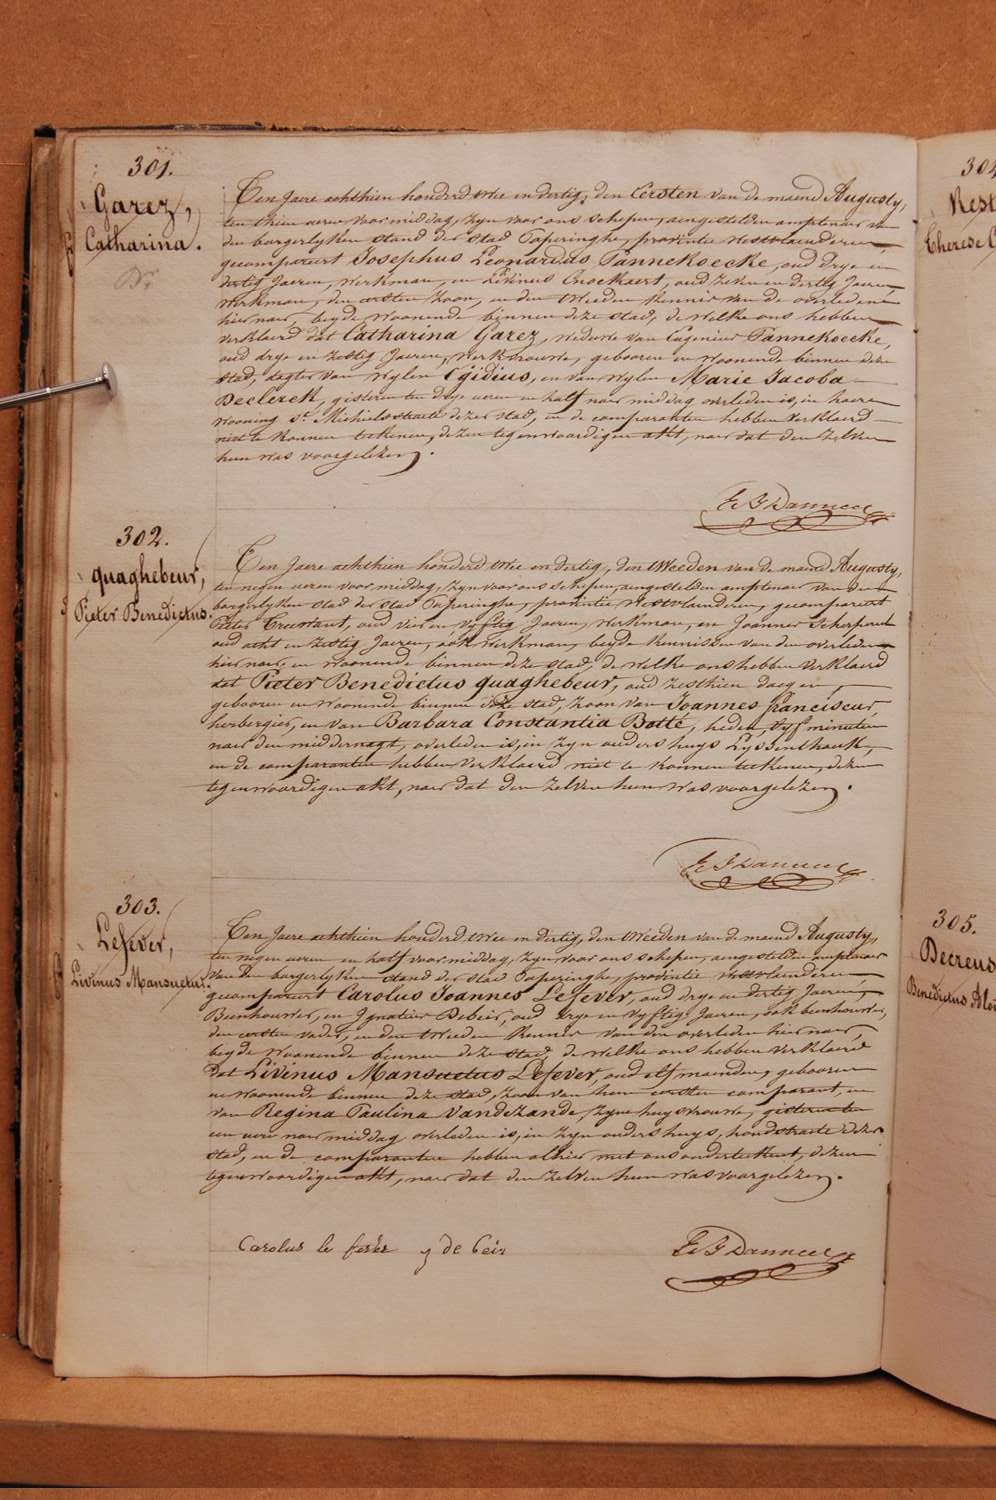 301.
Garez,
Catharina.
Ten Jaere achthien honderd twee en dertig, den Eersten van de maend Augusty,
ten thien ueren voormiddag, zyn voor ons schepen, aengestelden amptenaer van
den borgerlyken stand der stad Poperinghe, provintie Westvlaenderen,
gecompareert Josephus Leonardus Pannekoecke, oud drye en
dertig Jaeren, werkman, en Livinus, oud zeven en dertig Jaeren,
werkman, den eersten zoon, en den tweeden kennis van de overledene
hier naer, beyde woonende binnen deze stad, de welke ons hebben
verklaerd dat Catharina Garez, weduwe van Eugenius Pannekoecke,
oud drye en zestig Jaeren, werkvrouwe, gebooren en woonende binnen deze
stad, dogter van wylen Egidius, en van wylen Marie Jacoba
Declerck, gisteren ten drye ueren en half naer middag overleden is, in haere
wooning St. Michielsstraete dezer stad, en de comparanten hebben verklaerd
niet te konnen teekenen, dezen tegenwoordigen akt, naer dat den zelven
hun was voorgelezen.
302.
quaghebeur,
Pieter Benedictus.
Ten Jaere achthien honderd twee en dertig, den tweeden van de maend Augusty,
ten negen ueren voormiddag, zyn voor ons schepen, aengestelden amptenaer van den
borgerlyken stad der stad Poperinghe, provintie Westvlaenderen, gecompareert
Pieter, oud vier en vyftig Jaeren, werkman, en Joannes
oud acht en zestig Jaeren, ook werkman, beyde kennissen van den overleden
hier naer, en woonende binnen deze stad, de welke ons hebben verklaerd
dat Pieter Benedictus quaghebeur, oud zesthien daegen,
gebooren en woonende binnen deze stad, zoon van Joannes franciscus,
herbergier, en van Barbara Constantia Botte, heden, vyf minuten
naer den middernagt, overleden is, in zyn ouders huys Lyssenthoek,
en de comparanten hebben verklaerd niet te konnen teekenen, dezen
tegenwoordigen akt, naer dat den zelven hun was voorgelezen.
303.
Lefever,
Livinus Mansuetus.
Ten Jaere achthien honderd twee en dertig, den tweeden van de maend Augusty,
ten negen ueren en half voormiddag, zyn voor ons schepen, aengestelden amptenaer
van den borgerlyken stand der stad Poperinghe, provintie Westvlaenderen
gecompareert Carolus Joannes Lefever, oud drye en dertig Jaeren,
Beenhouwer, en Ignatius Debeir, oud drye en vyftig Jaeren, ook beenhouwer,
den eersten vader, en den tweeden kennis van den overleden hier naer,
beyde woonende binnen deze stad, de welke ons hebben verklaerd
dat Livinus Mansuetus Lefever, oud elf maenden, gebooren
en woonende binnen deze stad, zoon van hem eersten comparant, en
van Regina Paulina Vandezande, zyne huysvrouwe, gisteren ten
een uere naer middag overleden is, in zyn ouders huys, hondstraete dezer
stad, en de comparanten hebben alhier met ons onderteekent, dezen
tegenwoordigen akt, naer dat den zelven hun was voorgelezen.
Carolus le fever j de beir
304
Rest
Therese C
305.
Decreus
Benedictus Aloi